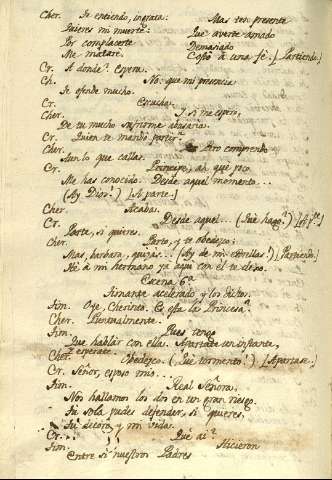 Cher. Ia entiendo, ingrata: Mas ten presente
Quieres mi muerte: Que averte amado
Por complacerte Demasiado
Me mataré. Costó a una fé. [Partiendo.]
Cr. A donde? Espera.
Ch. No: que mi presencia
Te ofende mucho.
Cr. Escucha.
Cher. Y si me espero,
De tu mucho sufrirme abusaria.
Cr. Quien te mandó partir?
Cher. Pero comprendo
Aun lo que callas.
Cr. Principe, ah que poco
Me has conocido: Desde aquel momento...
(Ay Dios!) [A parte.]
Cher. Acaba.
Cr. Desde aquel... (Què hago?) [A pte.]
Parte, si quieres.
Cher. Parto, y te obedezco:
Mas, barbara, quizas... (Ay de mi estrellas!) [Partiendo.]
He à mi hermano ya aqui con el te dexo.
Escena 6ª
Simante acelerado, y los dichos.
Sim. Oye, Cherinto. Es esta la Princesa?
Cher. Puntualmente.
Sim. Pues tengo
Que hablar con ella. Apartate un instante,
Y esperate.
Cher. Obedezco. (Què tormento!) [Apartase.]
Cr. Señor, esposo mio...
Sim. Real Señora,
Nos hallamos los dos en un gran riesgo.
Tu sola pudes defender, si quieres,
Tu decoro, y mi vida.
Cr. Què ai?
Sim. Hicieron
Entre si nuestros Padres